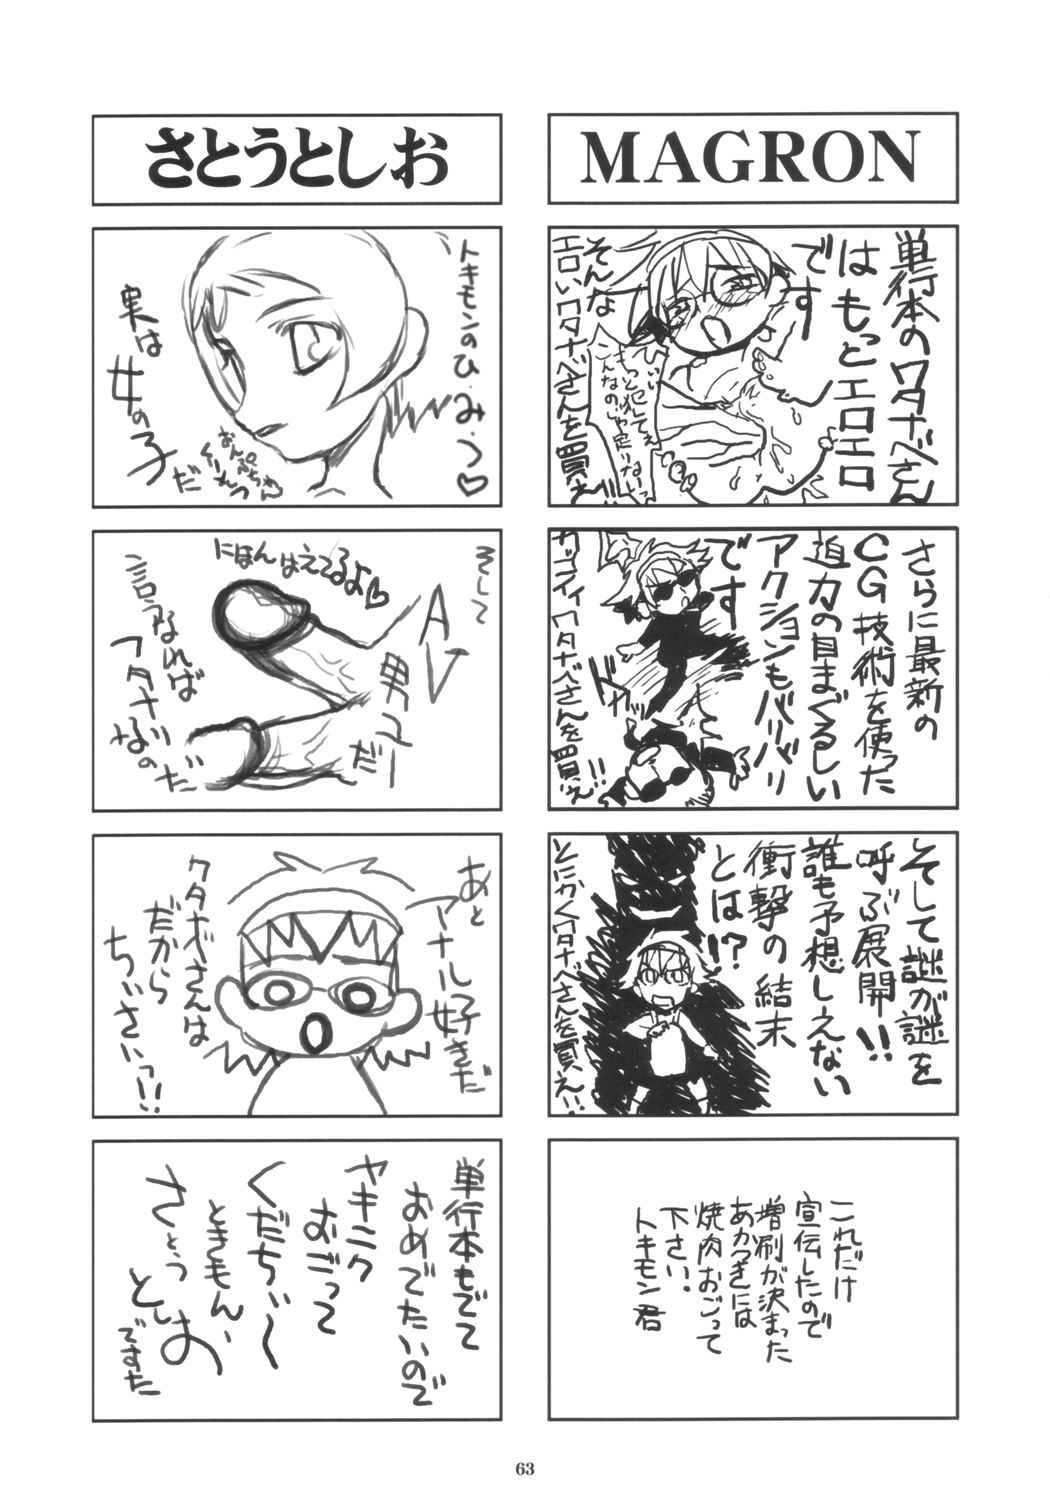 MAGRON
単行本のワタナベさん
はもっとエロエロ
です
そんな
エロいワタナベさんを買え!!
さらに最新の
CG技術を使った
迫力の目まぐるしい
アクションもバリバリ
です
カッコイイワタナベさんを買え!!
そして謎が謎を
呼ぶ展開!!
誰も予想しえない
衝撃の結末
とは!?
とにかくワタナベさんを買え!!
これだけ
宣伝したので
増刷が決まった
あかつきには
焼肉おごって
下さい!
トキモン君
さとうとしお
トキモンのひ・み・つ♡
実は
女の子
だ
そして
AV
男ユー
だ
にほんはえてるよ♡
言うなれば
フタナリ
なのだ
あと
アナル好きだ
ワタナベさんは
だから
ちいさいっ!!
単行本もでて
おめでたいので
ヤキニク
おごって
くだちぃ～
ときもん、
さとう
としお
ですた
63